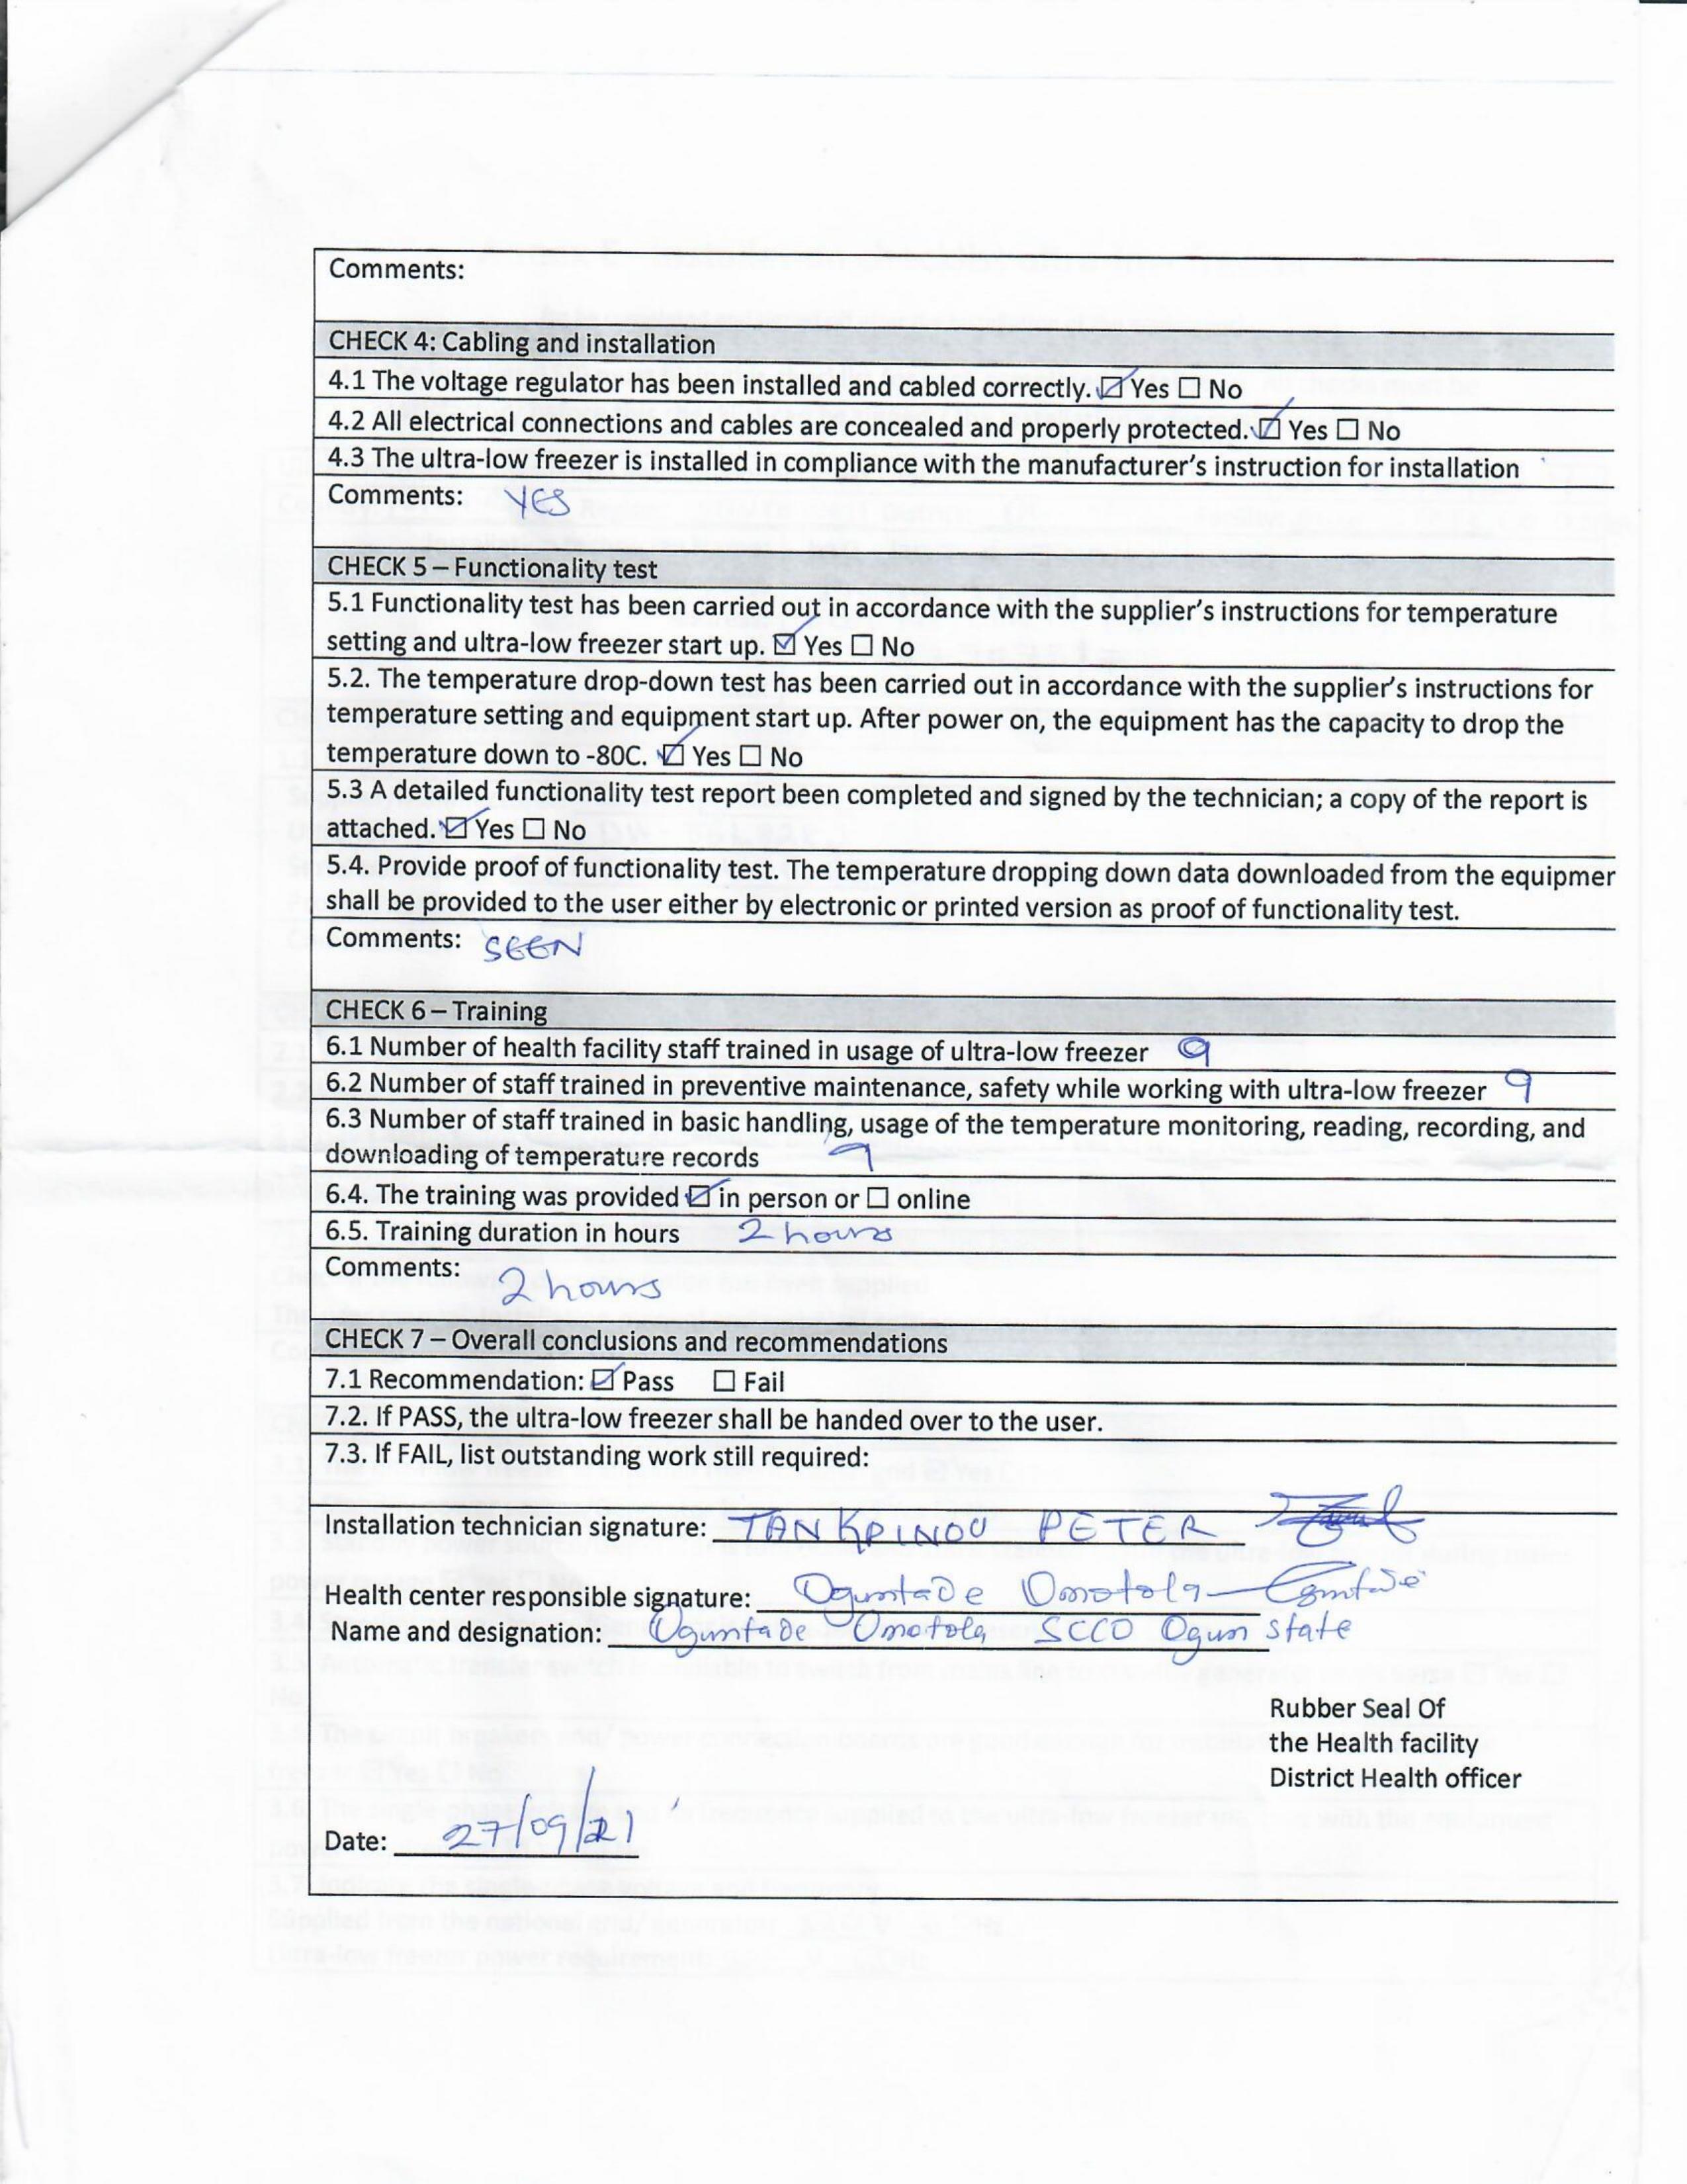 Comments:
CHECK 4: Cabling and installation
4.1 The voltage regulator has been installed and cabled correctly. ☑ Yes ☐ No
4.2 All electrical connections and cables are concealed and properly protected. ☑ Yes ☐ No
4.3 The ultra-low freezer is installed in compliance with the manufacturer's instruction for installation
Comments: YES
CHECK 5 – Functionality test
5.1 Functionality test has been carried out in accordance with the supplier's instructions for temperature
setting and ultra-low freezer start up. ☑ Yes ☐ No
5.2. The temperature drop-down test has been carried out in accordance with the supplier's instructions for
temperature setting and equipment start up. After power on, the equipment has the capacity to drop the
temperature down to -80C. ☑ Yes ☐ No
5.3 A detailed functionality test report been completed and signed by the technician; a copy of the report is
attached. ☑ Yes ☐ No
5.4. Provide proof of functionality test. The temperature dropping down data downloaded from the equipmer
shall be provided to the user either by electronic or printed version as proof of functionality test.
Comments: SEEN
CHECK 6 – Training
6.1 Number of health facility staff trained in usage of ultra-low freezer 9
6.2 Number of staff trained in preventive maintenance, safety while working with ultra-low freezer 9
6.3 Number of staff trained in basic handling, usage of the temperature monitoring, reading, recording, and
downloading of temperature records 9
6.4. The training was provided ☑ in person or ☐ online
6.5. Training duration in hours 2 hours
Comments: 2 hours
CHECK 7 – Overall conclusions and recommendations
7.1 Recommendation: ☑ Pass ☐ Fail
7.2. If PASS, the ultra-low freezer shall be handed over to the user.
7.3. If FAIL, list outstanding work still required:
Installation technician signature: TANKPINOU PETER
Health center responsible signature: Oguntade Omotola
Name and designation: Oguntade Omotola SCCO Ogun state
Rubber Seal Of
the Health facility
District Health officer
Date: 27/09/21